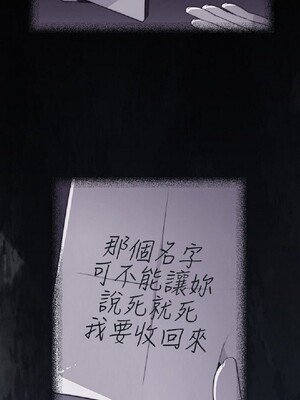 那個名字
可不能讓妳
說死就死
我要收回來